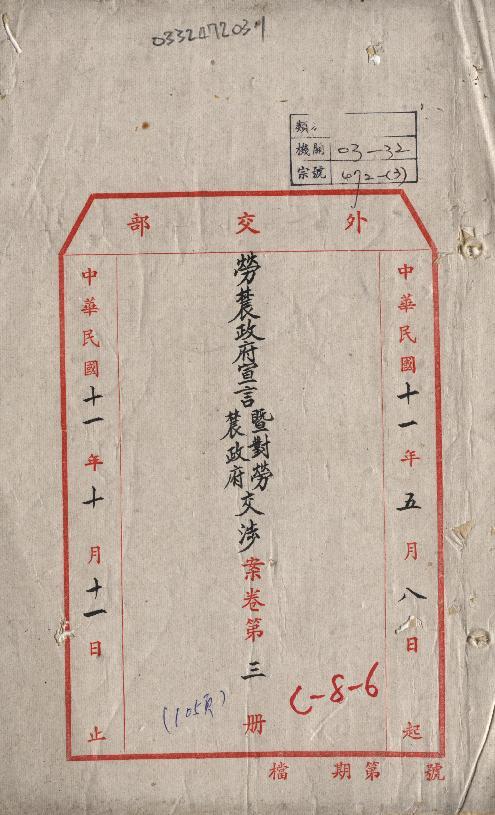 0332472031
類:
機關 03-32
宗號 472-(3)
外交部
中華民國十一年五月八日起
勞農政府宣言暨對勞農政府交涉案卷第三册
C-8-6
(105頁)
中華民國十一年十月十一日止
號第期檔